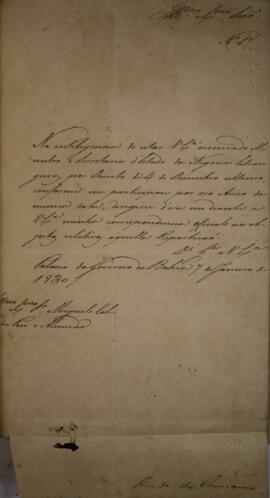 Illmo. Exmo. Senr.
N. 1º
Na intelligencia de estar V. Exª nomeado Mi
nistro e Secretario d'Estado dos Negocios Estran
geiros, por Decreto de 4 de Dezembro ultimo,
conforme me participou por seo Aviso da
mesma data, dirigirei d'ora em diante a
V. Exª minha correspondencia official nos ob
jectos relativos áquella Repartição.
Ds. Gde. V. Exª
Palacio do Governo da Bahia 7 de Janeiro de
1830
Miguel Cal
mon du Pin e Almeida
Visconde de Camamú